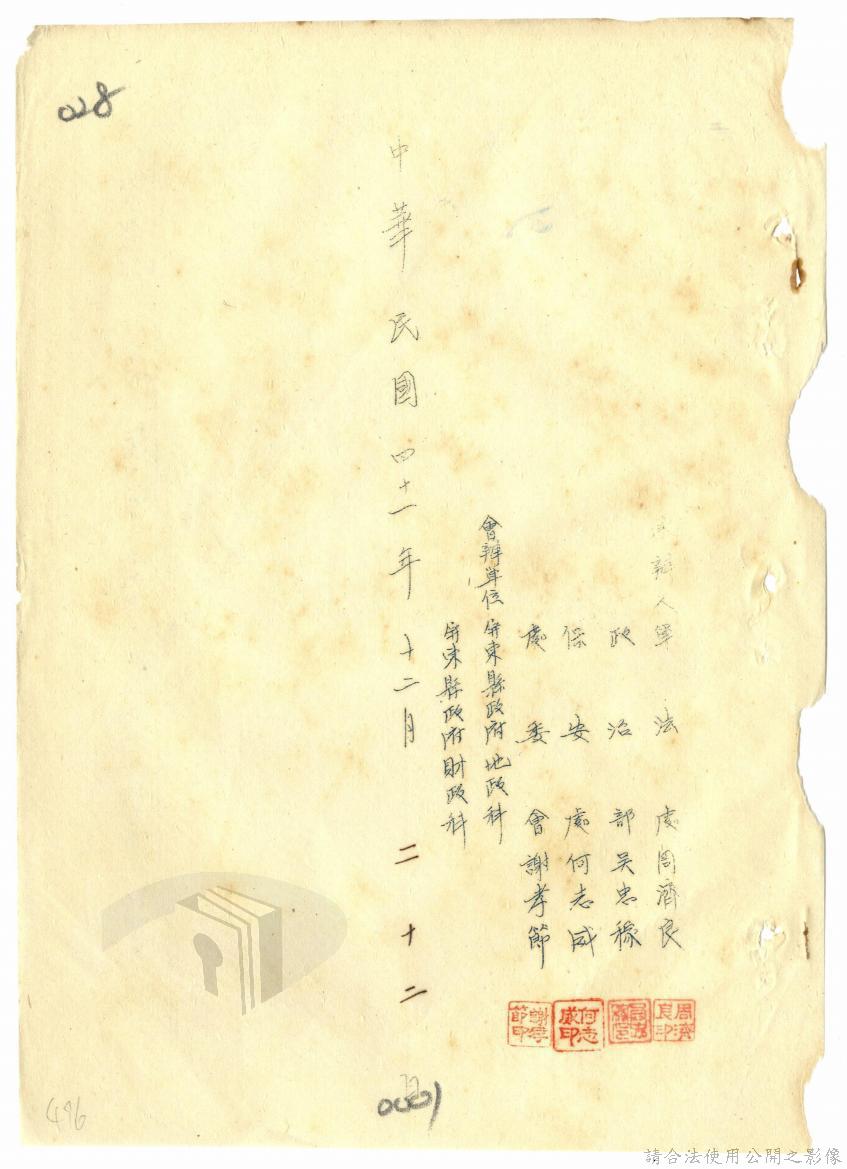 028
辦人軍法處周濟良
政治部吳忠稼
保安處何志威
處委會謝孝節
會辦單位屏東縣政府地政科
屏東縣政府財政科
中華民國四十一年十二月二十二日
周濟良印
何志威印
謝孝節印
0001
496
請合法使用公開之影像